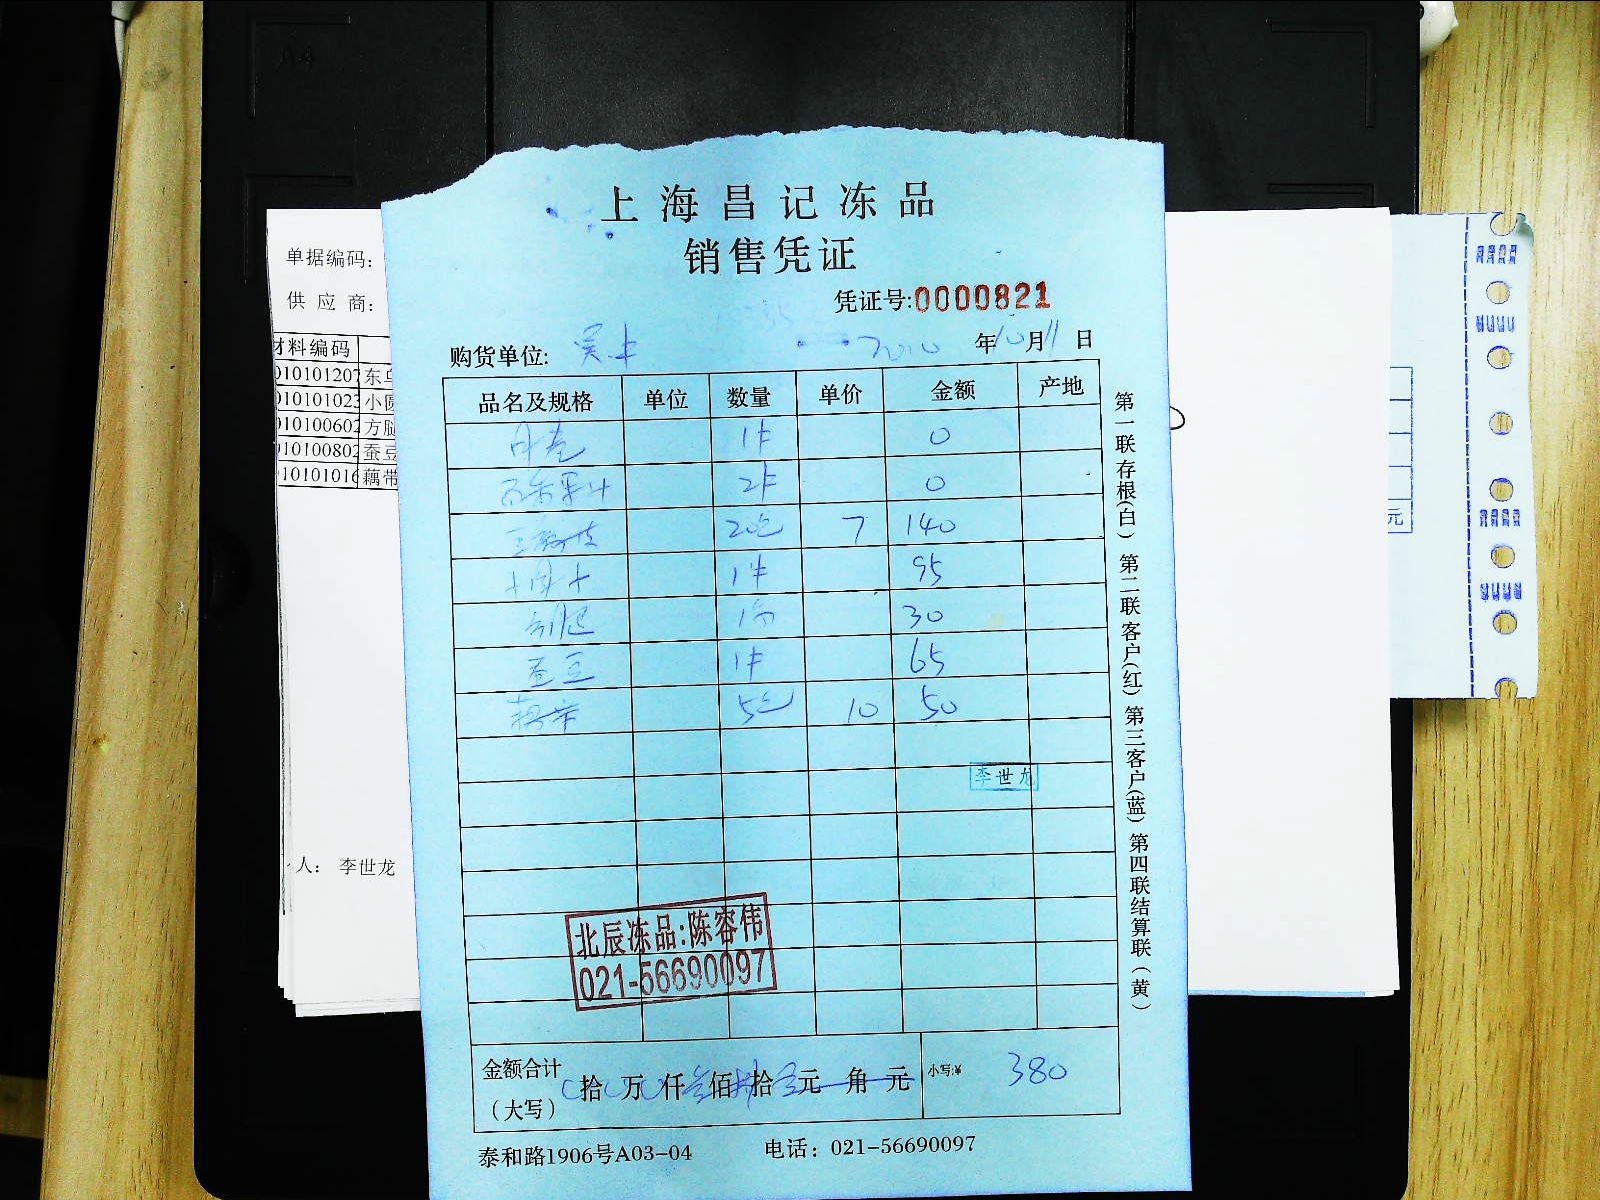 A4
上海昌记冻品
销售凭证
凭证号:0000821
单据编码:
供应商:
购货单位: 年10月11日
材料编码
品名及规格 单位 数量 单价 金额 产地
010101207 东乌
010101023 小圆
010100602 方腿
010100802 蚕豆
010101016 藕带
1件 0
2件 0
20包 7 140
1件 95
30
蚕豆 1件 65
藕带 5包 10 50
元
李世龙
人: 李世龙
北辰冻品:陈容伟
021-56690097
金额合计(大写) 拾万仟佰拾元角元 小写:¥ 380
泰和路1906号A03-04 电话: 021-56690097
第一联存根(白) 第二联客户(红) 第三客户(蓝) 第四联结算联(黄)